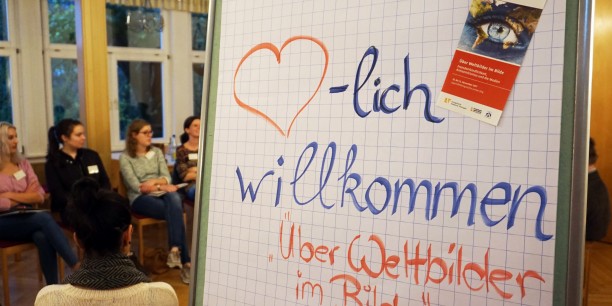 -lich
willkommen
„Über Weltbilder
im Bilde"
Über Weltbilder im Bilde